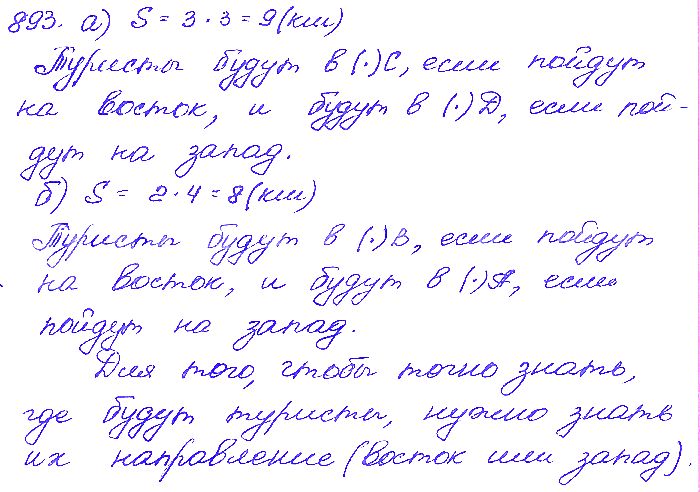 893. а) S = 3 · 3 = 9 (км)
Туристы будут в (·) С, если пойдут
на восток, и будут в (·) D, если пой-
дут на запад.
б) S = 2 · 4 = 8 (км)
Туристы будут в (·) В, если пойдут
на восток, и будут в (·) А, если
пойдут на запад.
Для того, чтобы точно знать,
где будут туристы, нужно знать
их направление (восток или запад).